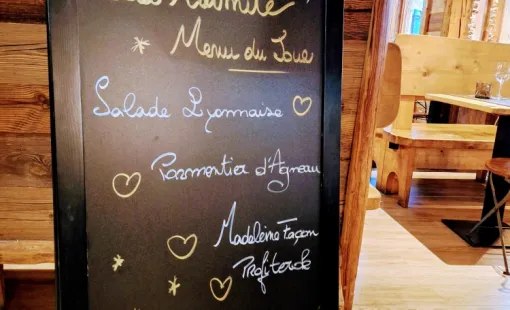 Menu du Jour
Salade Lyonnaise
Parmentier d'Agneau
Madeleine Façon
Profiterole